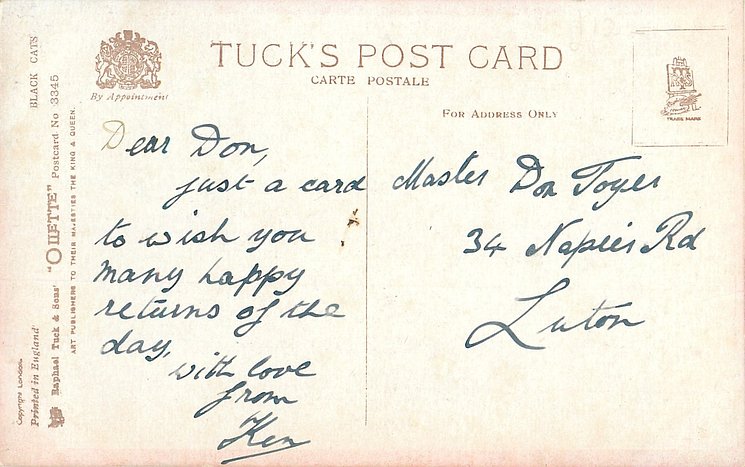 TUCK'S POST CARD
CARTE POSTALE
By Appointment
FOR ADDRESS ONLY
TRADE MARK
Dear Don,
just a card
to wish you
many happy
returns of the
day,
with love
from
Ken
Master Don Toyer
34 Napier Rd
Luton
BLACK CATS
Raphael Tuck & Sons' "OILETTE" Postcard No 3345
ART PUBLISHERS TO THEIR MAJESTIES THE KING & QUEEN.
Copyright London.
Printed in England